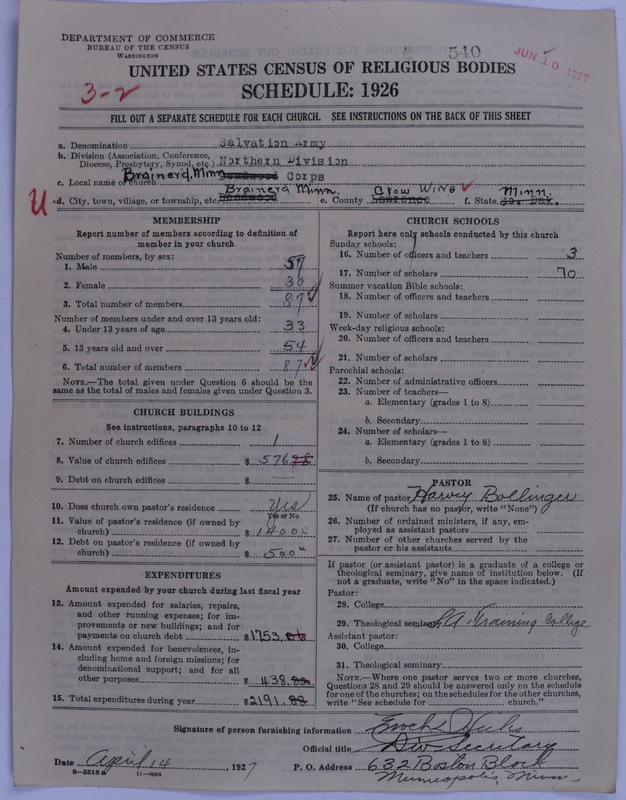 DEPARTMENT OF COMMERCE
BUREAU OF THE CENSUS
WASHINGTON
540
JUN 10 1927
3-2
UNITED STATES CENSUS OF RELIGIOUS BODIES
SCHEDULE: 1926
FILL OUT A SEPARATE SCHEDULE FOR EACH CHURCH. SEE INSTRUCTIONS ON THE BACK OF THIS SHEET
a. Denomination Salvation Army
b. Division (Association, Conference, Diocese, Presbytery, Synod, etc.) Northern Division
c. Local name of church Brainerd, Minn Deadwood Corps
d. City, town, village, or township, etc. Brainerd Minn. Deadwood e. County Crow Wing Lawrence f. State Minn. So. Dak.
MEMBERSHIP
Report number of members according to definition of
member in your church
Number of members, by sex:
1. Male 57
2. Female 30
3. Total number of members 87
Number of members under and over 13 years old:
4. Under 13 years of age 33
5. 13 years old and over 54
6. Total number of members 87
NOTE.—The total given under Question 6 should be the
same as the total of males and females given under Question 3.
CHURCH BUILDINGS
See instructions, paragraphs 10 to 12
7. Number of church edifices 1
8. Value of church edifices $ 576
9. Debt on church edifices $ —
10. Does church own pastor's residence Yes
Yes or No
11. Value of pastor's residence (if owned by
church) $ 1400
12. Debt on pastor's residence (if owned by
church) $ 500
EXPENDITURES
Amount expended by your church during last fiscal year
13. Amount expended for salaries, repairs,
and other running expenses; for im-
provements or new buildings; and for
payments on church debt $1753.
14. Amount expended for benevolences, in-
cluding home and foreign missions; for
denominational support; and for all
other purposes $ 438.
15. Total expenditures during year $2191.88
CHURCH SCHOOLS
Report here only schools conducted by this church
Sunday schools:
16. Number of officers and teachers 3
17. Number of scholars 70
Summer vacation Bible schools:
18. Number of officers and teachers
19. Number of scholars
Week-day religious schools:
20. Number of officers and teachers
21. Number of scholars
Parochial schools:
22. Number of administrative officers
23. Number of teachers—
a. Elementary (grades 1 to 8)
b. Secondary
24. Number of scholars—
a. Elementary (grades 1 to 8)
b. Secondary
PASTOR
25. Name of pastor Harvey Bollinger
(If church has no pastor, write "None")
26. Number of ordained ministers, if any, em-
ployed as assistant pastors
27. Number of other churches served by the
pastor or his assistants
If pastor (or assistant pastor) is a graduate of a college or
theological seminary, give name of institution below. (If
not a graduate, write "No" in the space indicated.)
Pastor:
28. College
29. Theological seminary S.A. Training College
Assistant pastor:
30. College
31. Theological seminary
NOTE.—Where one pastor serves two or more churches,
Questions 28 and 29 should be answered only on the schedule
for one of the churches; on the schedules for the other churches,
write "See schedule for church."
Signature of person furnishing information Enochs
Official title Div Secretary
Date April 14, 1927 P. O. Address 632 Boston Block
Minneapolis, Minn
8-5518 a 11-9054